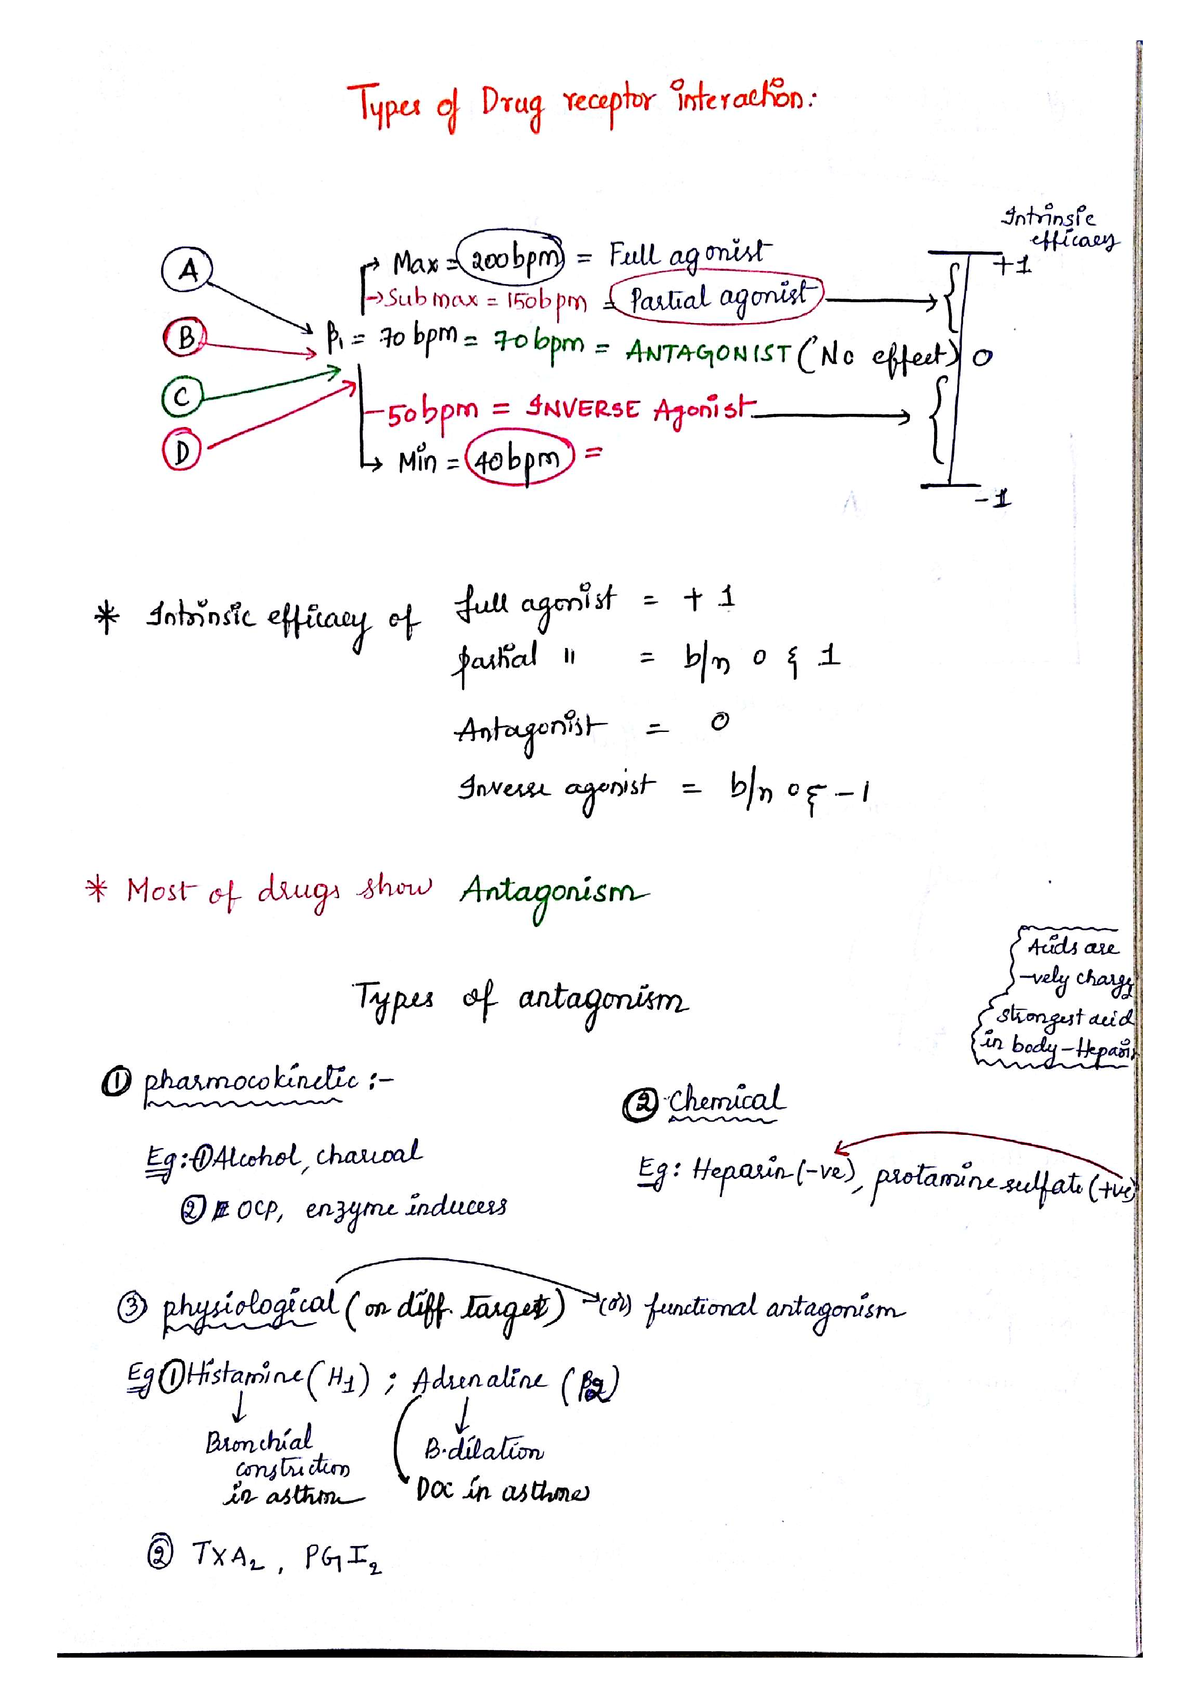 Types of Drug receptor interaction:
Intrinsic
efficacy
A
Max = 200bpm = Full agonist
+1
Submax = 150bpm = Partial agonist
B
β1 = 70 bpm = 70 bpm = ANTAGONIST (No effect) 0
C
50bpm = INVERSE Agonist
D
Min = 40bpm =
-1
* Intrinsic efficacy of full agonist = +1
partial " = b/n 0 & 1
Antagonist = 0
Inverse agonist = b/n 0 & -1
* Most of drugs show Antagonism
Acids are
-vely charg
strongest acid
in body-Heparin
Types of antagonism
① pharmocokinetic :-
② Chemical
Eg: ① Alcohol, charcoal
Eg: Heparin (-ve), protamine sulfate (+ve)
② OCP, enzyme inducers
③ physiological (on diff. target) → (or) functional antagonism
Eg ① Histamine (H1) ; Adrenaline (β2)
Bronchial
constriction
in asthma
B.dilation
DOC in asthma
② TXA2, PGI2